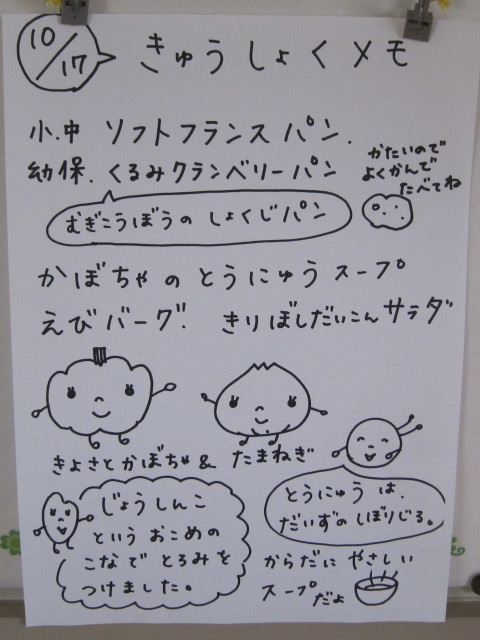 10/17
きゅうしょくメモ
小.中 ソフトフランスパン.
幼保.くるみクランベリーパン
かたいので
よくかんで
たべてね
むぎこうぼうの しょくじパン
かぼちゃの とうにゅう スープ
えびバーグ. きりぼしだいこん サラダ
きよさとかぼちゃ & たまねぎ
じょうしんこ
という おこめの
こなで とろみを
つけました。
とうにゅうは、
だいずの しぼりじる。
からだに やさしい
スープだよ